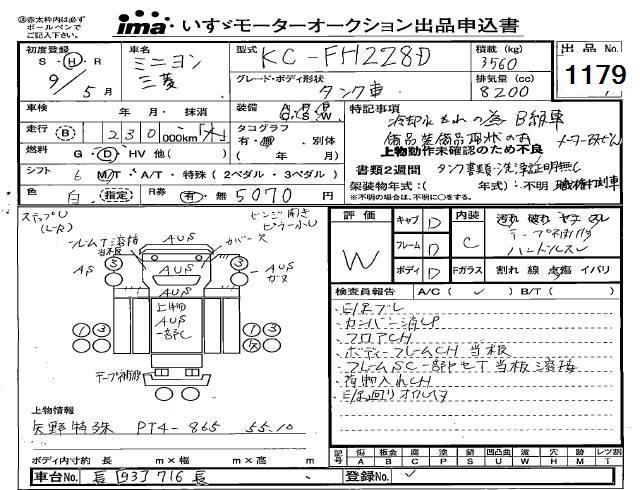 注赤太枠内は必ず
ボールペンで
ご記入下さい。
ima いすゞモーターオークション出品申込書
初度登録
S・H・R
9/5月
車名
ミニヨン
三菱
型式
KC-FH228D
積載(kg)
3560
グレード・ボディ形状
タンク車
排気量(cc)
8200
出品No.
1179
車検
年 月・抹消
装備
A P P
C・S・W
走行
B
230 000km
タコグラフ
有・ 別体
( 年 月)
燃料
G・D HV 他( )
シフト
6 M/T A/T・特殊(2ペダル・3ペダル)
色
白 指定
R券
有・無 5070円
特記事項
冷却水もれの為 B級車
備品装備品現状のみ
上物動作未確認のため不良
書類2週間
タンク書類・洗浄証明無し
架装物年式:( 年式)・不明 職権打刻車
※不明の場合は、不明に○をする。
ステップU
(L・R)
フレームT溶接
当板
AUS
カバー欠
ヒンジ開き
ピラー小U
AS
5
3
AUS
AUS
ガス
上物
AUS
一部C
1
3
1
3
テープ補修
評価
W
キャブ D
フレーム D
ボディ D
内装
C
Fガラス
汚れ 破れ ヤケ スレ
テープ補修
ハンドルスレ
割れ 線 点傷 イバリ
検査員報告
A/C( ✓ ) B/T( )
カンバン消し
フロアCH
ボディーフレームCH 当板
フレームSC一部 当板溶接
荷物入れCH
上物情報
矢野特殊 PT4-865 55.10
ボディ内寸約 長 m×幅 m×高 m
記号
傷 A
板金 B
腐 C
塗 P
錆 S
凹凸曲 U
波 W
穴 H
跡 M
レツ割 T
車台No.
長[93]716長
登録No.